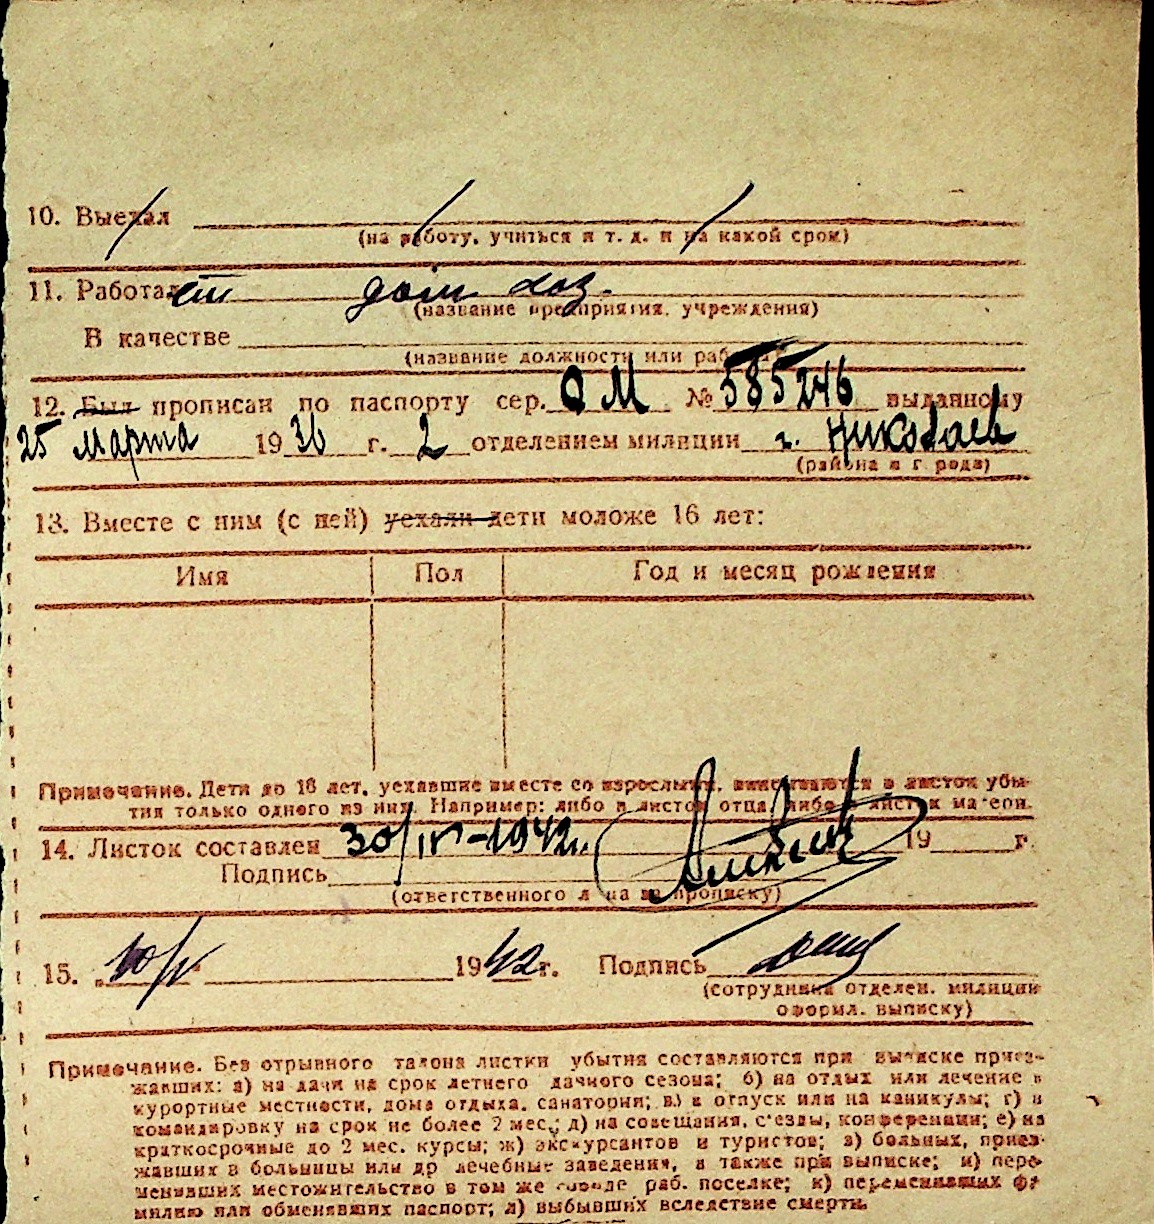 10. Выехал
(на работу, учиться и т. д. и на какой срок)
11. Работал дом. хоз.
(название предприятия, учреждения)
В качестве
(название должности или работы)
12. Был прописан по паспорту сер. ОМ № 585246 выданному
25 марта 1936 г. 2 отделением милиции г. Николаев
(района и города)
13. Вместе с ним (с ней) уехали дети моложе 16 лет:
Имя Пол Год и месяц рождения
Примечание. Дети до 16 лет, уехавшие вместе со взрослыми, вписываются в листок убы-
тия только одного из них. Например: либо в листок отца, либо в листок матери.
14. Листок составлен 30/IV-1942г. 19 г.
Подпись
(ответственного лица за прописку)
15. 1942г. Подпись
(сотрудника отделен. милиции
оформл. выписку)
Примечание. Без отрывного талона листки убытия составляются при выписке приез-
жавших: а) на дачи на срок летнего дачного сезона; б) на отдых или лечение в
курортные местности, дома отдыха, санатории; в) в отпуск или на каникулы; г) в
командировку на срок не более 2 мес.; д) на совещания, съезды, конференции; е) на
краткосрочные до 2 мес. курсы; ж) экскурсантов и туристов; з) больных, приез-
жавших в больницы или др лечебные заведения, а также при выписке; и) пере-
менивших местожительство в том же городе раб. поселке; к) переменивших фа-
милию или обменявших паспорт; л) выбывших вследствие смерти.